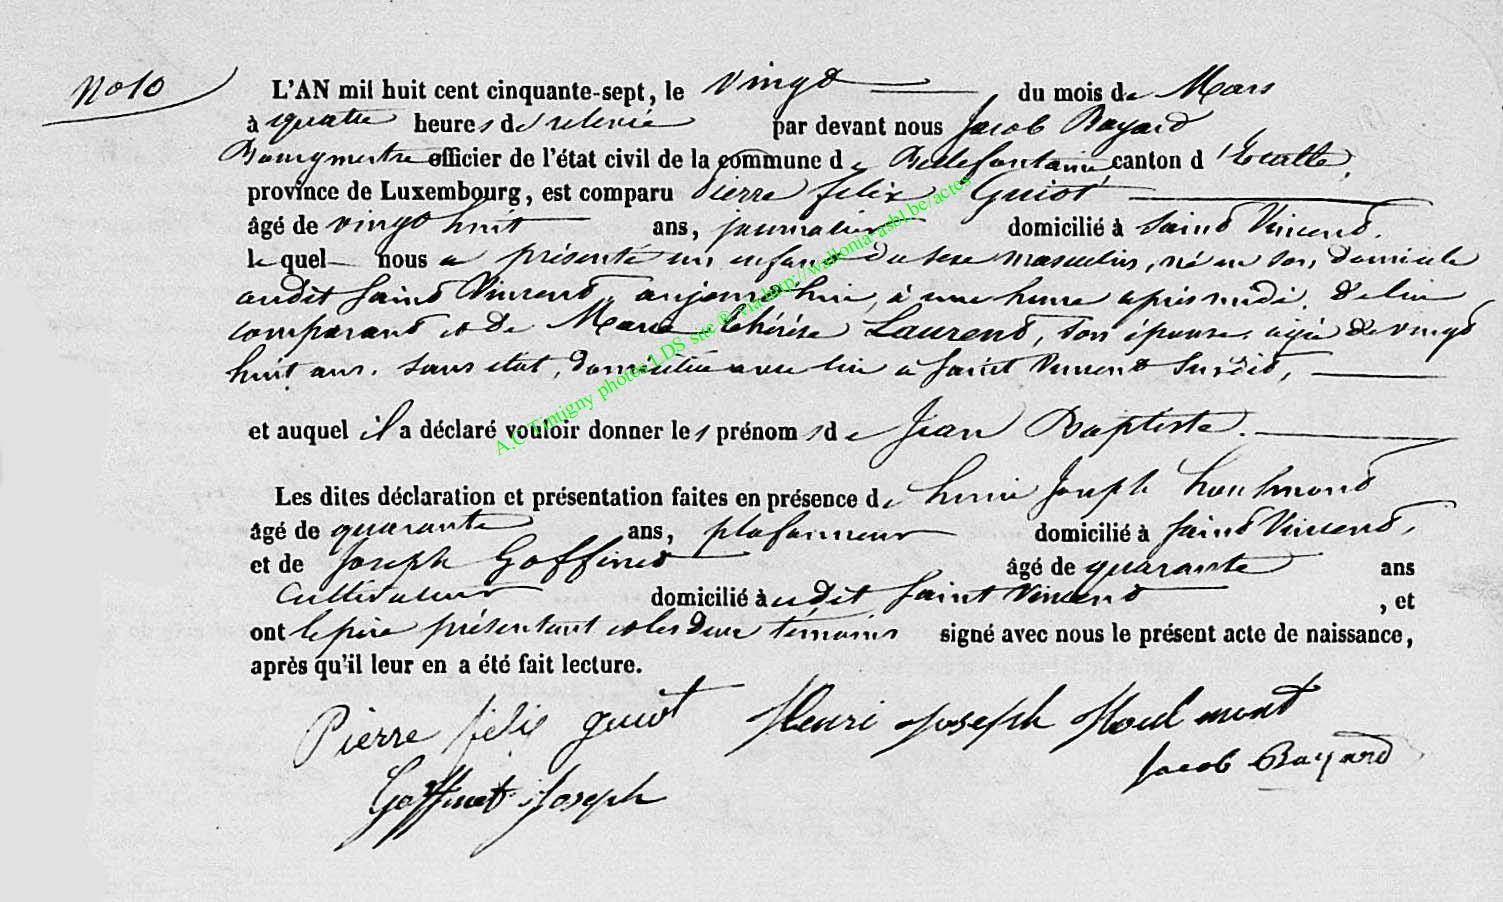 No 10
L'AN mil huit cent cinquante-sept, le vingt du mois de Mars
à quatre heures de relevée par devant nous Jacob Bayard
Bourgmestre officier de l'état civil de la commune de Bellefontaine, canton d'Etalle,
province de Luxembourg, est comparu Pierre félix Guiot
âgé de vingt huit ans, journalier domicilié à Saint Vincent.
lequel nous a présenté un enfant du sexe masculin, né en son domicile
audit Saint Vincent, aujourd'hui, à une heure après midi, de lui
comparant et de Marie Thérèse Laurent, son épouse, agée de vingt
huit ans, sans état, domiciliée avec lui à Saint Vincent susdit,
et auquel il a déclaré vouloir donner les prénoms de Jean Baptiste.
Les dites déclaration et présentation faites en présence de henri Joseph houlmont
âgé de quarante ans, plafonneur domicilié à Saint Vincent,
et de Joseph Goffinet âgé de quarante ans
Cultivateur domicilié audit Saint Vincent, et
ont le père présentant et les deux témoins signé avec nous le présent acte de naissance,
après qu'il leur en a été fait lecture.
Pierre félix guiot Henri Joseph Houlmont
Jacob Bayard
Goffinet Joseph
A.C Tintigny photos LDS site ® via http://wallonia-asbl.be/actes